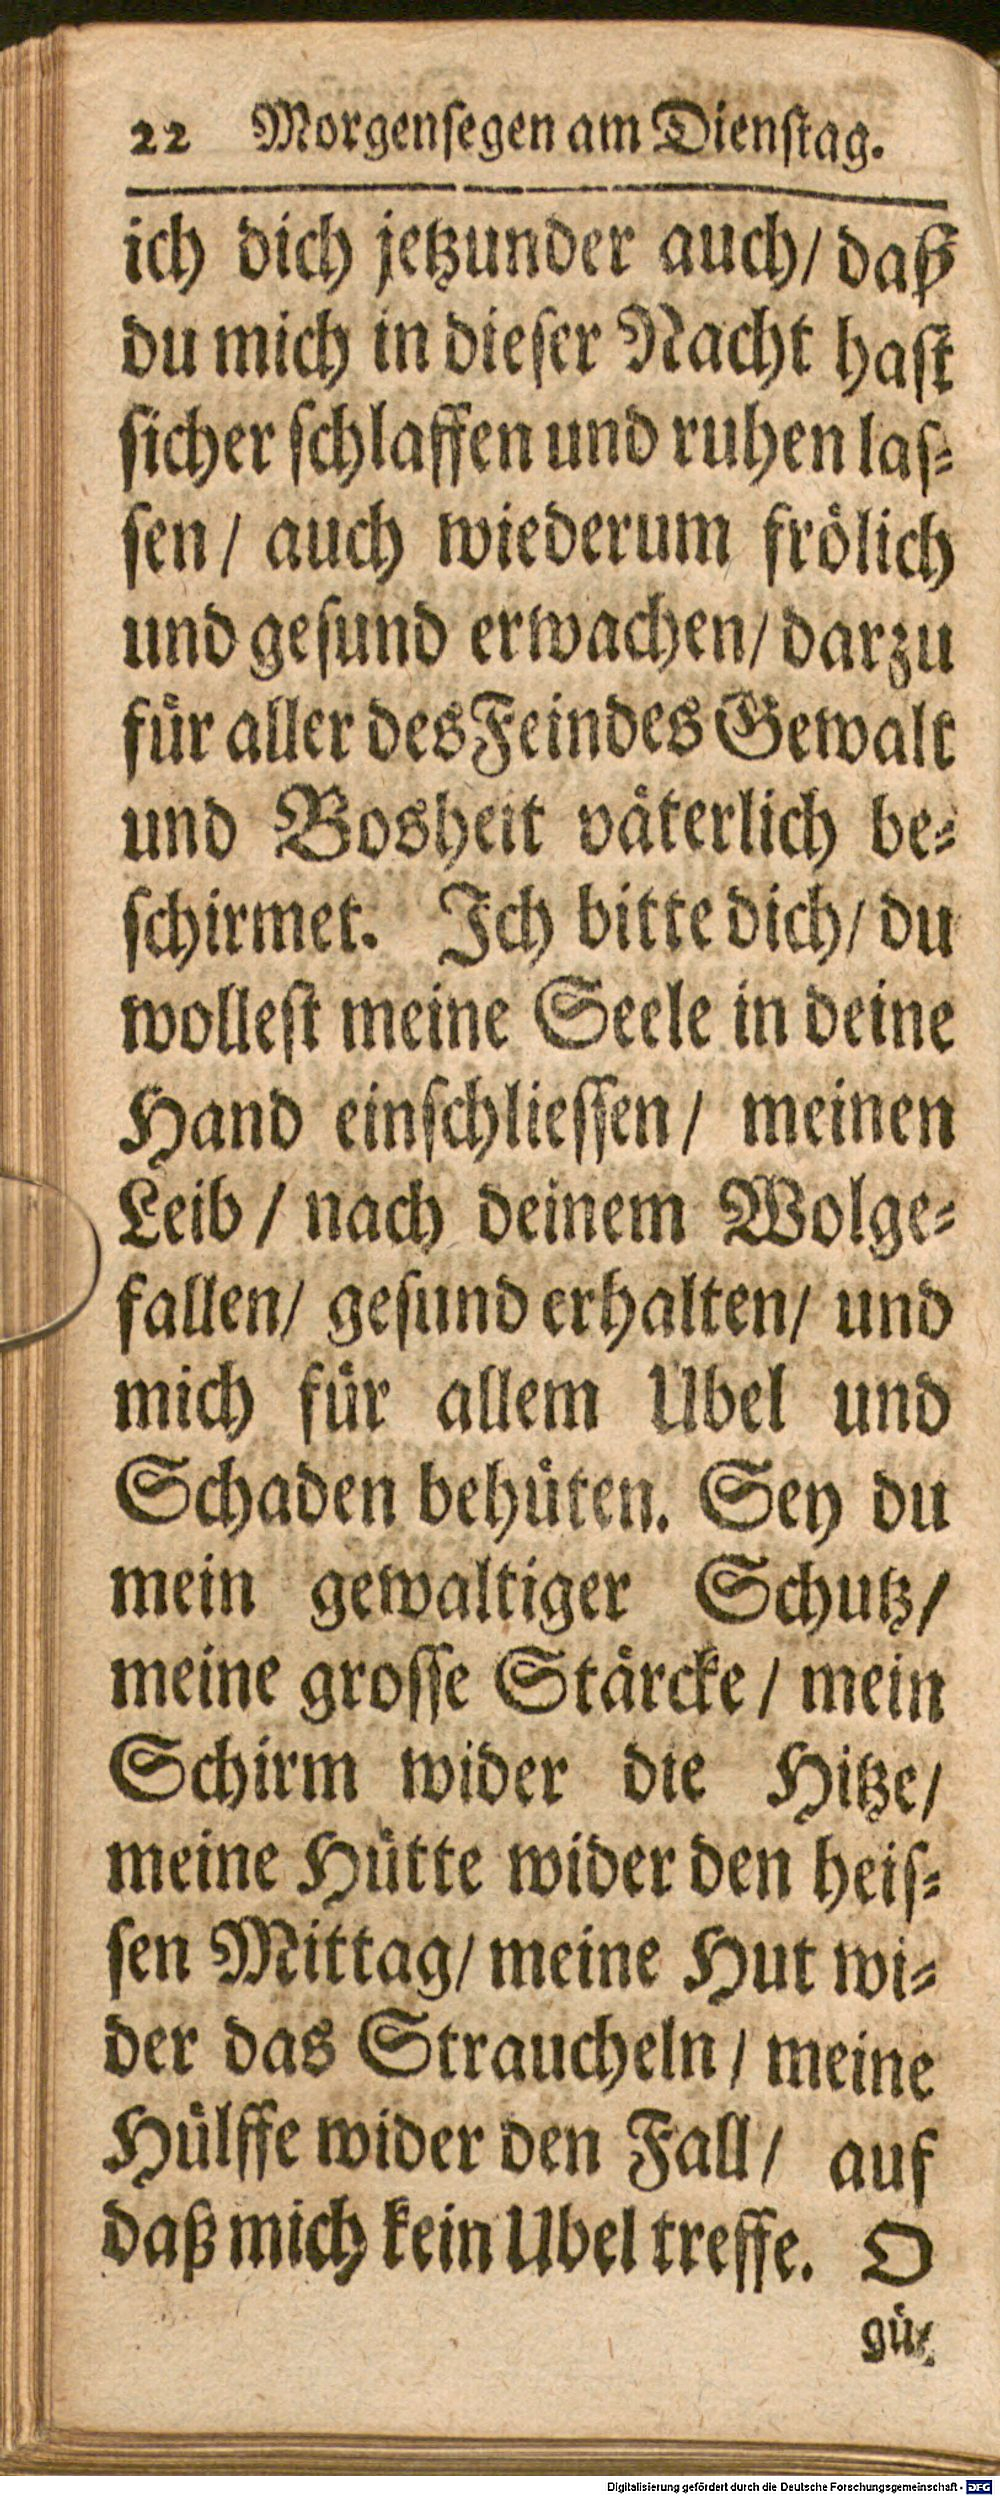 22 Morgenſegen am Dienſtag.
ich dich jetzunder auch/ daß
du mich in dieſer Nacht haſt
ſicher ſchlaffen und ruhen laſ-
ſen/ auch wiederum froͤlich
und geſund erwachen/ darzu
fuͤr aller des Feindes Gewalt
und Bosheit vaͤterlich be-
ſchirmet. Ich bitte dich/ du
wolleſt meine Seele in deine
Hand einſchlieſſen/ meinen
Leib/ nach deinem Wolge-
fallen/ geſund erhalten/ und
mich fuͤr allem Ubel und
Schaden behuͤten. Sey du
mein gewaltiger Schutz/
meine groſſe Staͤrcke/ mein
Schirm wider die Hitze/
meine Huͤtte wider den heiſ-
ſen Mittag/ meine Hut wi-
der das Straucheln/ meine
Huͤlffe wider den Fall/ auf
daß mich kein Ubel treffe. O
guͤ-
Digitalisierung gefördert durch die Deutsche Forschungsgemeinschaft - DFG